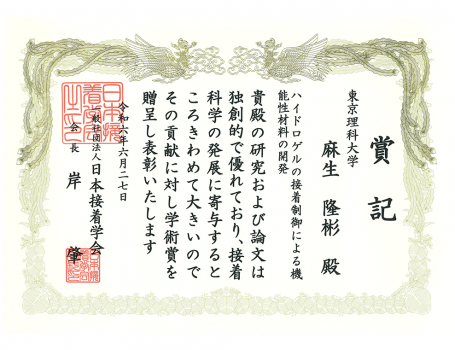 賞記
東京理科大学
麻生 隆彬 殿
ハイドロゲルの接着制御による機
能性材料の開発
貴殿の研究および論文は
独創的で優れており、接着
科学の発展に寄与すると
ころきわめて大きいので
その貢献に対し学術賞を
贈呈し表彰いたします
令和六年六月二七日
一般社団法人日本接着学会
会長 岸 肇